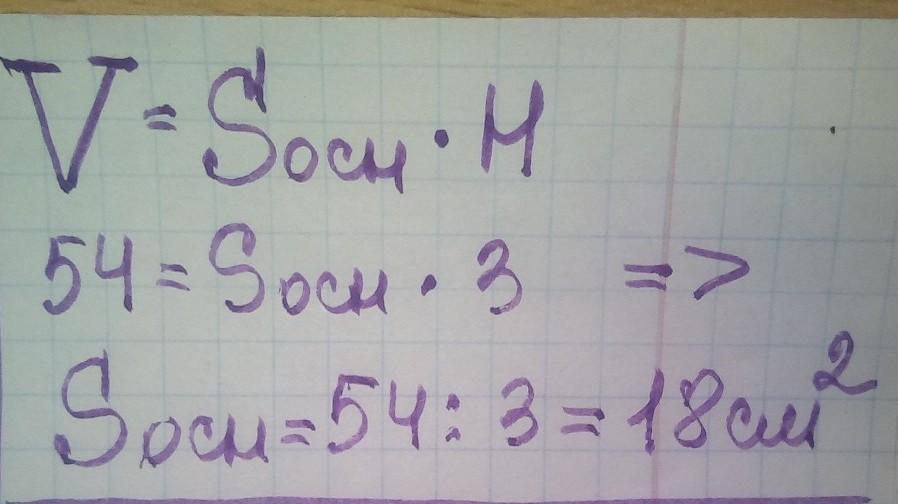 V = Sосн · H
54 = Sосн · 3 =>
Sосн = 54 : 3 = 18 см²